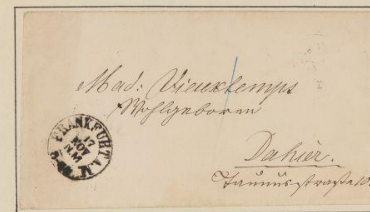 Mad: Vieuxtemps
Wohlgeboren
Dahier.
Taunusstraße 10.
FRANKFURT A. M.
17
NOV
N.M